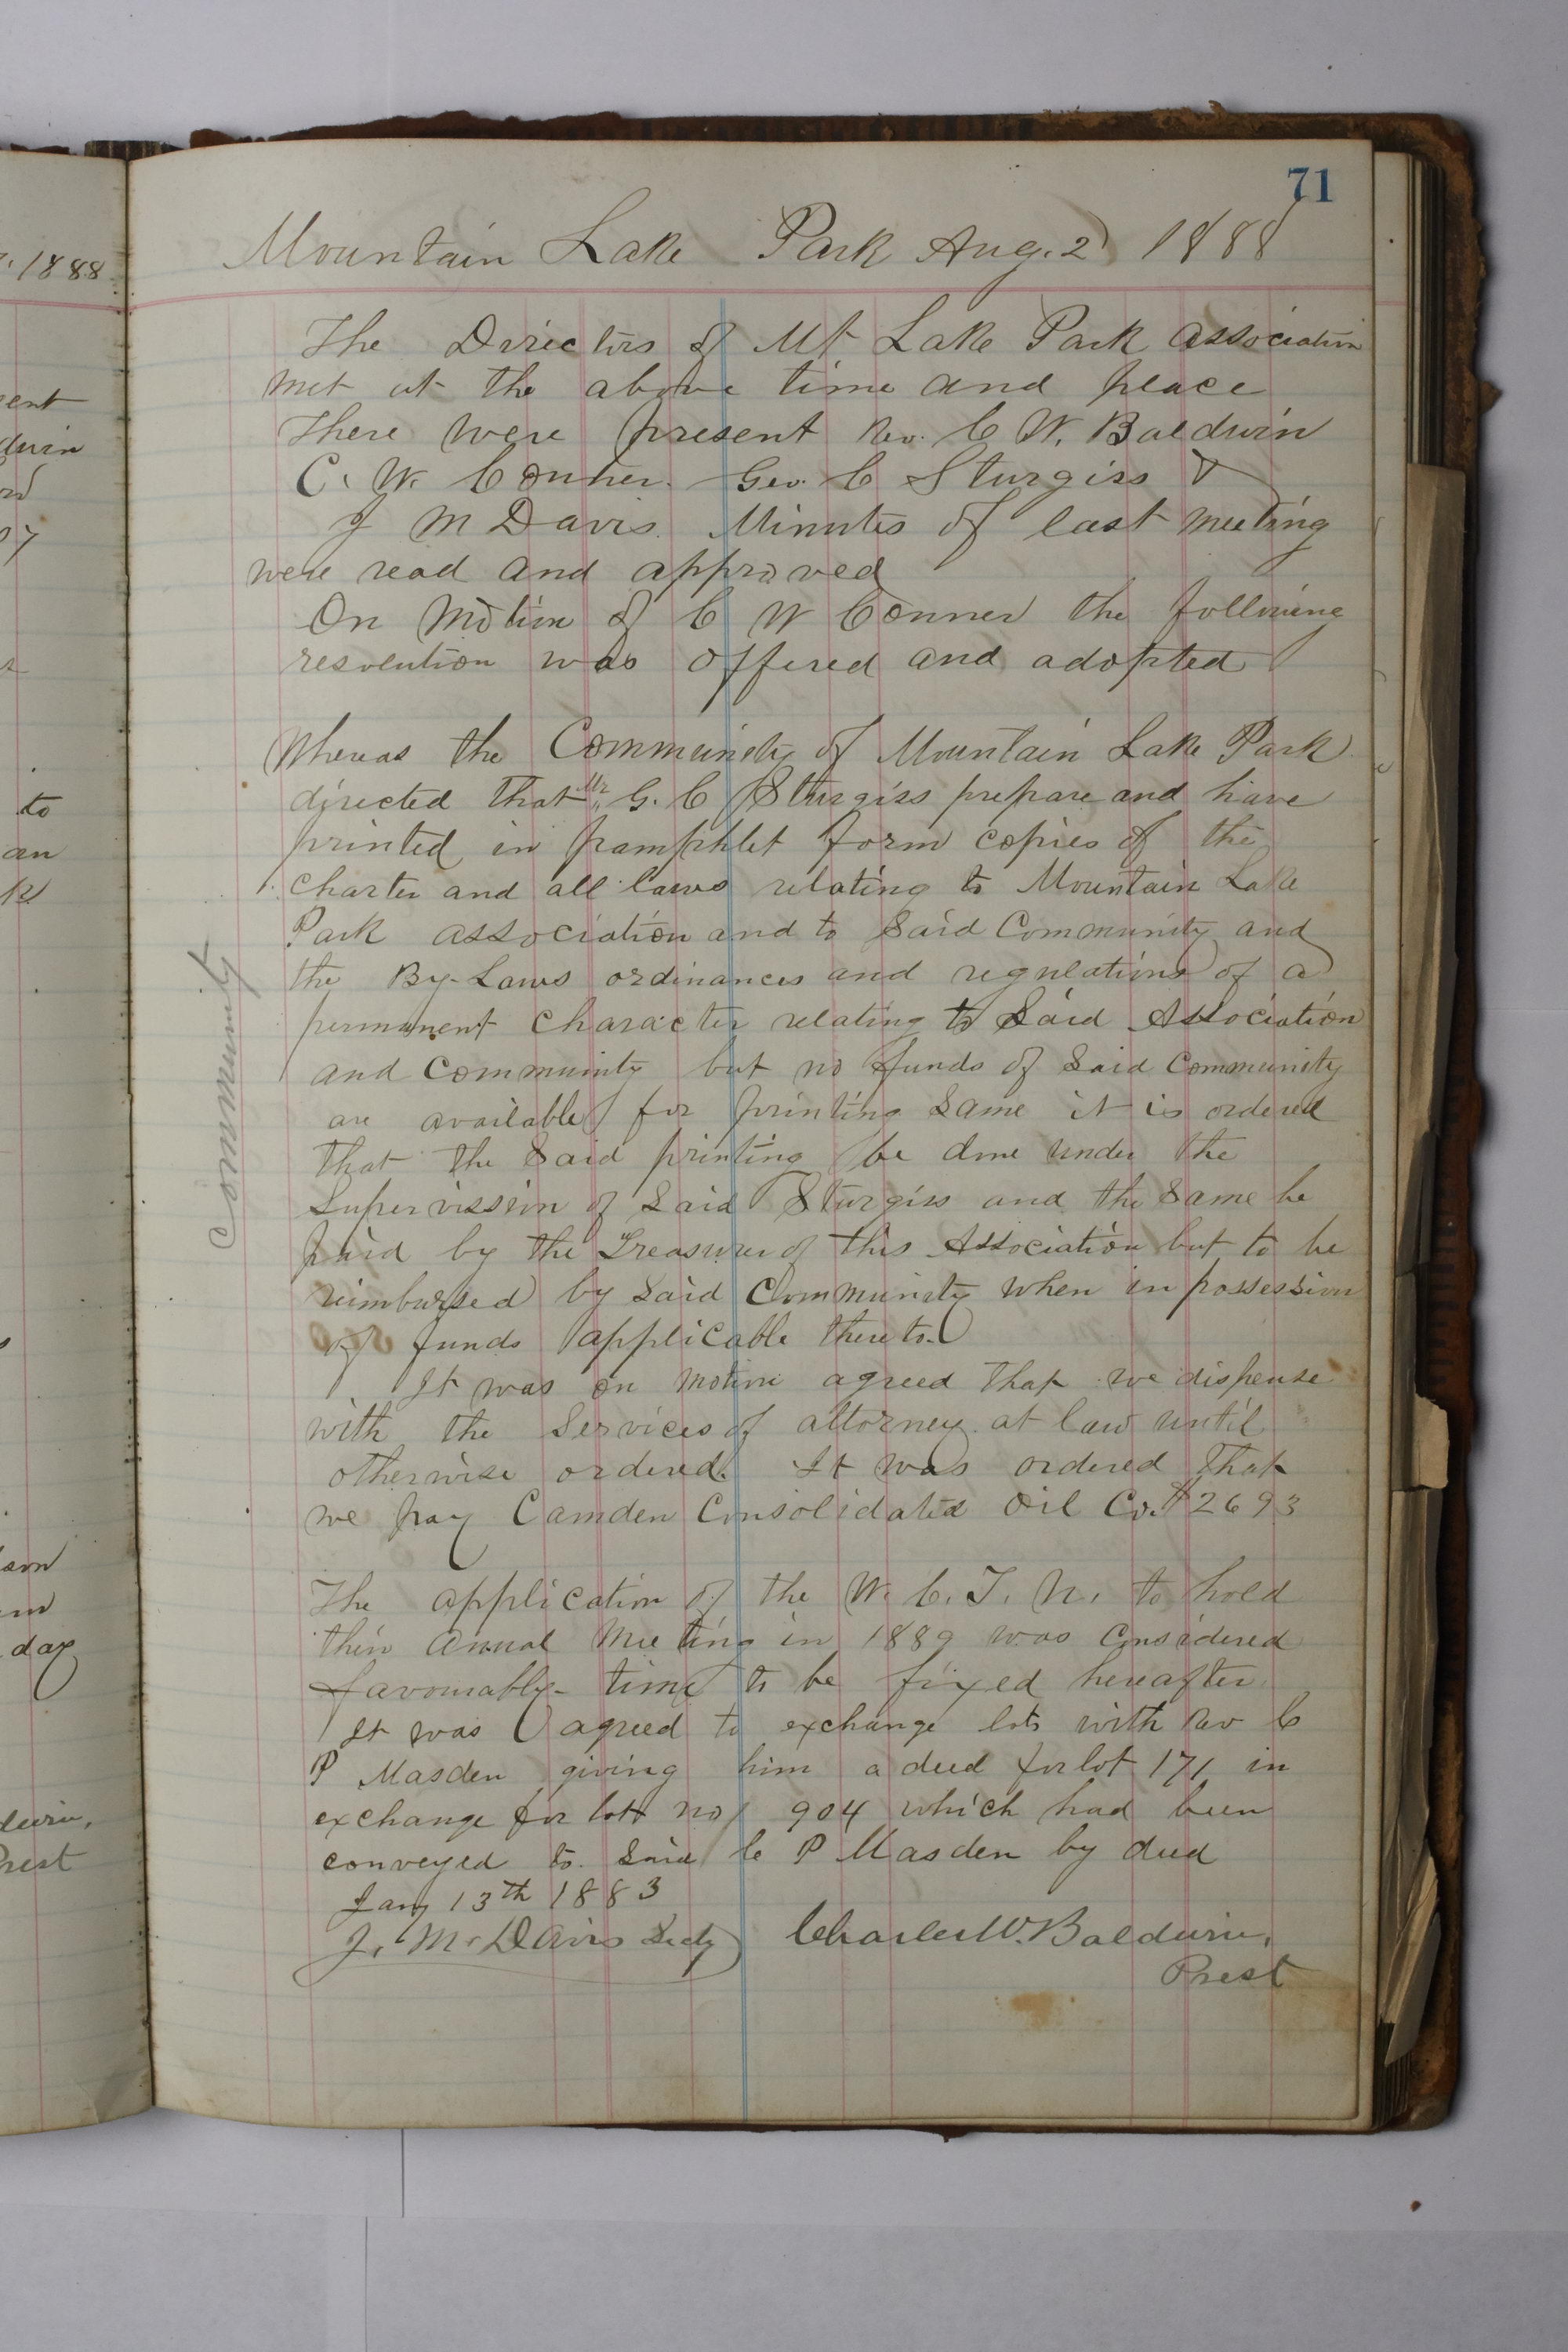 71
Mountain Lake Park Aug. 2 1888
The Directors of Mt Lake Park Association
met at the above time and place
There were present Rev. C W. Baldwin
C. W. Conner. Geo. C Sturgiss &
J M Davis. Minutes of last meeting
were read and approved
On motion of C W Conner the following
resolution was offered and adopted
Whereas the Community of Mountain Lake Park
directed that Mr G. C Sturgiss prepare and have
printed in pamphlet form copies of the
charter and all laws relating to Mountain Lake
Park association and to Said Community and
the By-Laws ordinances and regulations of a
permanent character relating to Said Association
and Community but no funds of Said Community
are available for printing Same it is ordered
that the Said printing be done under the
Supervission of Said Sturgiss and the Same be
paid by the Treasurer of this Association but to be
reimbursed by Said Community when in possession
of funds applicable thereto.
It was on motion agreed that we dispense
with the Services of attorney at law until
otherwise ordered. It was ordered that
we pay Camden Consolidated Oil Co. $2693
The application of the W. C. T. U. to hold
their Annual Meeting in 1889 was Considered
favourably - time to be fixed hereafter
It was agreed to exchange lots with Rev C
P Masden giving him a deed for lot 171 in
exchange for lott no 904 which had been
conveyed to Said C P Masden by deed
Jany 13th 1883
J. M. Davis Secty Charles W. Baldwin,
Prest
Community
. 1888
ent
dwin
to
an
day
dwin,
Prest